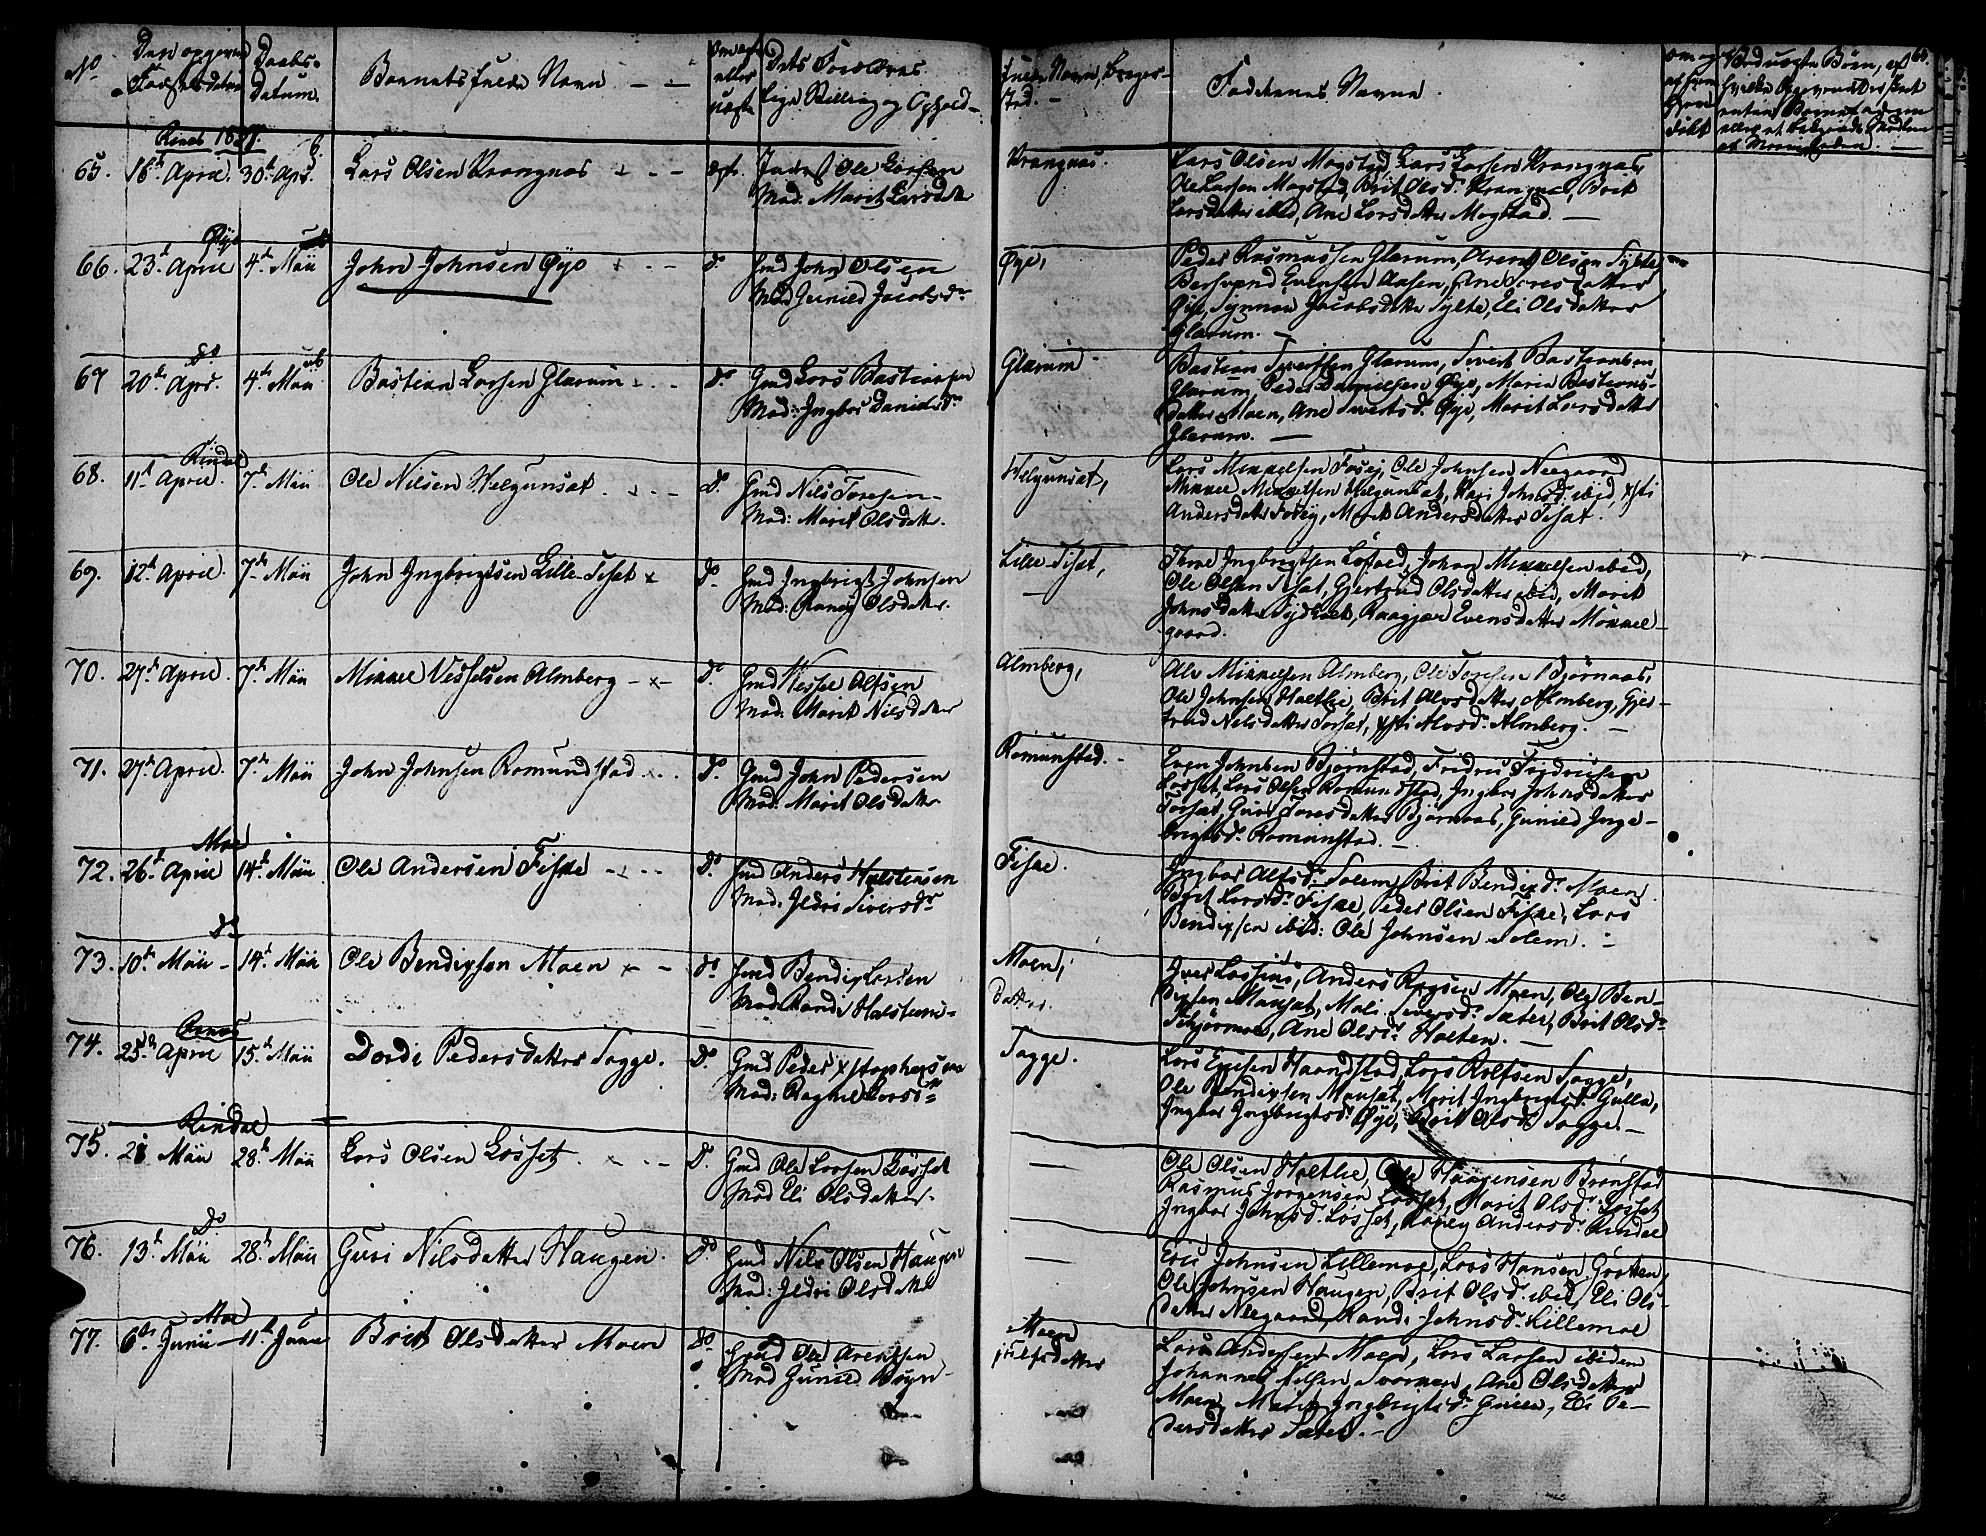 No Den opgivne Fødselsdatum Daabs-Datum. Barnets fulde Navn Om ægte eller uægte Dets Forældres lige Stilling og Ophold- fulde Navn, borger- Stad. Faddernes Navne
60.
Rindal 1837.
65. 16de April. 30te Apr. Lars Olsen Krangnæs ægte. Inderst Ole Larsen
Mod: Marit Larsdatter
Krangnæs.
Lars Olsen Mogstad, Lars Larsen Krangnæs,
Ole Larsen Mogstad, Brit Olsd. Krangnæs, Brit
Larsdatter ibid, Ane Larsdatter Mogstad.
Øye
66. 23d. April 4de Mäii John Johnsen Øye do. Gmd John Olsen
Mod Gunild Jacobsdr
Øye,
Peder Rasmussen Glærum, Arent Olsen Sylte,
Bersvend Evensen Aasen, Ane Toresdatter
Øye, Synnøv Jacobsdatter Sylte, Eli Olsdatter
Glærum.
do
67 20de Apr. 4de Mäii Bastian Larsen Glærum do Gmd Lars Bastiansen
Mod: Ingbor Danielsdr
Glærum
Bastian Sivertsen Glærum, Sivert Bastiansen
Glærum, Peder Danielsen Øye, Maria Bastians-
datter Moen, Ane Sivertsd. Øye, Marit Larsdatter
Glærum.
Rindal
68. 11te April. 7de Mäii Ole Nilsen Helgunsat. do. Gmd Nils Toresen
Mod: Marit Olsdatter.
Helgunsat,
Lars Mikkelsen Fosey, Ole Johnsen Neegaard
Mikkel Mikkelsen Helgunsat, Kari Johnsd. ibid, Kisti
Andersdatter Fosey, Marit Andersdatter Tiset.
69. 12te April. 7de Mäii John Ingbrigtsen Lille-Tiset do. Gmd Ingbrigt Johnsen
Mod: Raney Olsdatter.
Lille Tiset,
Thore Ingbrigtsen Løfald, Johan Mikkelsen ibid,
Ole Olsen Tiset, Gjertrud Olsdatter ibid, Marit
Johnsdatter, Raagjær Evensdatter Mikkel-
gaard.
70. 27de April. 7de Mäii Mikkel Vesselsen Almberg do. Gmd Vessel Alfsen
Mod: Marit Nilsdatter
Almberg,
Ale Mikkelsen Almberg, Ole Toresen Bjørnaas,
Ole Johnsen Holtlie, Brit Alvsdatter Almberg, Gjer-
trud Nilsdatter Torset, Kisti Alvsd. Almberg.
71. 27de April. 7de Mäii John Johnsen Romundstad do. Gmd John Pedersen
Mod: Marit Olsdatter
Romunstad.
Even Johnsen Bjørnstad, Fredric Fredricsen
Løsset, Lars Olsen Romundstad, Ingbor Johnsdatter
Torset, Guri Toresdatter Bjørnaas, Gunild Inge-
brigtsd. Romunstad.
Moe
72. 26de April 14de Mäii Ole Andersen Fiske do. Gmd Anders Halstensen
Mod: Ildri Siversdr
Fiske.
Ingbor Alfsd. Solem, Brit Bendixd. Moen,
Brit Larsdr. Fiske, Peder Olsen Fiske, Lars
Bendixsen ibid: Ole Johnsen Solem.
do
73. 10de Mäii 14de Mäii Ole Bendixsen Moen do. Gmd Bendix Larsen
Mod: Randi Halstens-
Moen,
datter.
Iver Lossius, Anders Rogsen Moen, Ole Ben-
dixsen Mauset, Mali Siversd. Sæter, Brit Olsdr
Skjørmoe, Ane Olsdr. Holten.
Rinas
74. 25de April 15de Mäii Dordi Pedersdatter Togge. do. Gmd Peder Kristophersen
Mod: Ragnil Larsdr
Togge.
Lars Ericsen Haandstad, Lars Rolfsen Togge,
Ole Bendixsen Mauset, Marit Ingbrigtsd. Gulla,
Ingbor Ingbrigtsd. Øye, Brit Olsd. Togge.
Rindal
75. 21 Mäii 28de Mäii Lars Olsen Løsset. do. Gmd Ole Larsen Løsset
Mod Eli Olsdatter.
Ole Olsen Holtlie, Ole Haagensen Brønstad
Rasmus Jørgensen Løsset, Marit Olsd. Løsset
Ingbor Johnsd. Løsset, Raney Andersd. Rindal
do
76. 13de Mäii 28de Mäii Guri Nilsdatter Haugen. do Gmd Nils Olsen Haugen
Mod: Ildri Olsdatter
Eric Johnsen Lillemoe, Lars Hansen
Ole Johnsen Haugen, Brit Olsd. ibid, Eli Ols-
datter Neegaard, Randi Johnsd. Lillemoe
Moe
77. 6de Junii 11te Junii Brit Olsdatter Moen do. Gmd Ole Arentsen
Mod Gunild Bøyn-
Moen
Lars Andersen Moen, Lars Larsen ibidem
Johannes Svormoe, Ane Olsdatter
Moen, Marit Ingbrigtsd. Gulla, Eli Pe-
dersdatter Sæter.